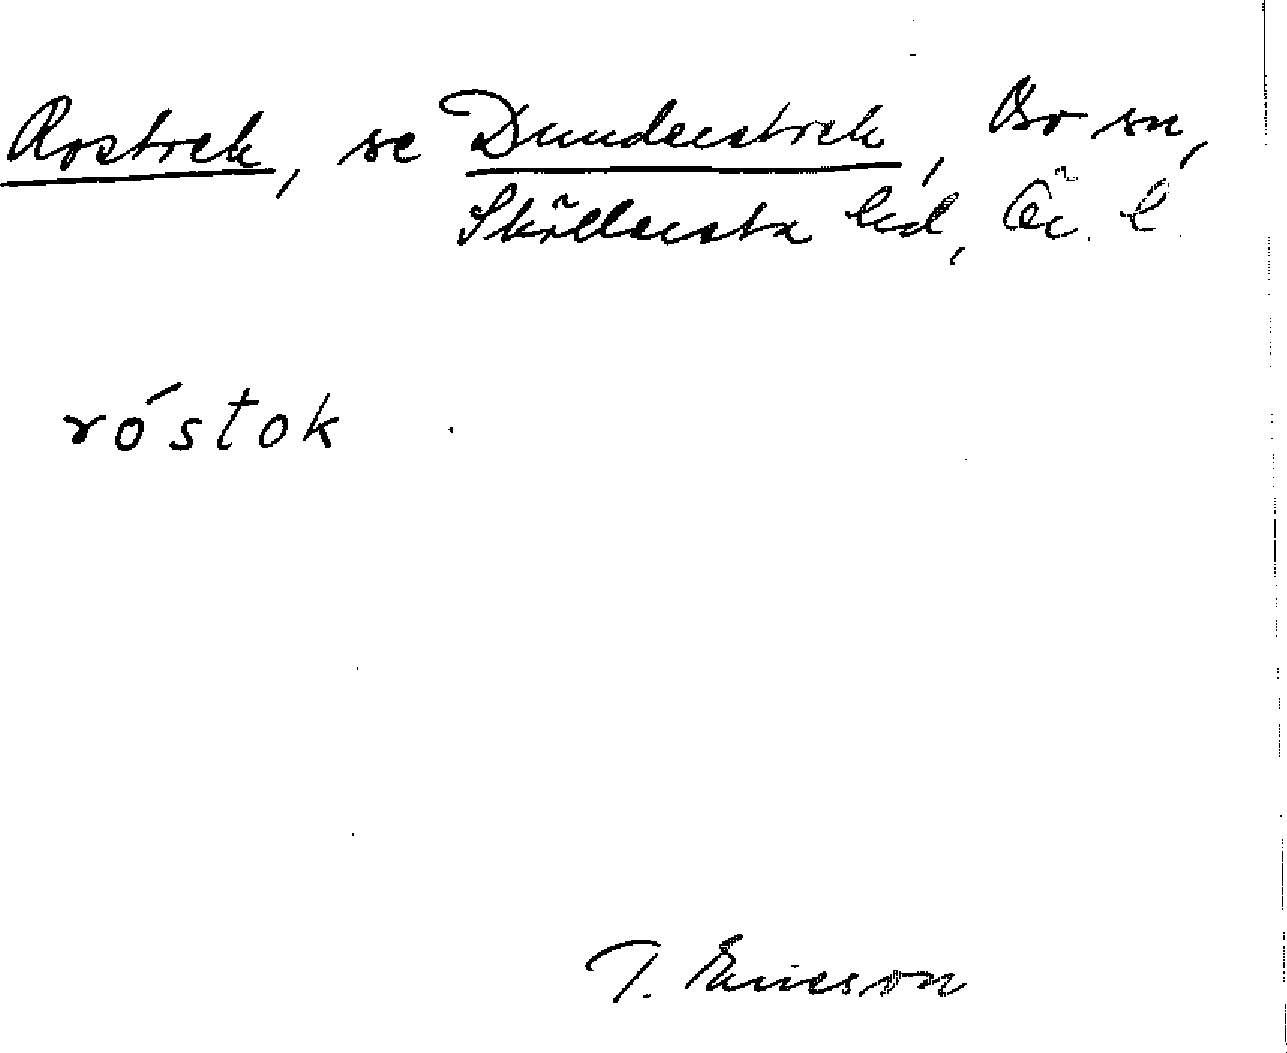 Rostock, se Dunderstock, Bo sn,
Sköllersta hd, Ör. l.
róstok
T. Ericson